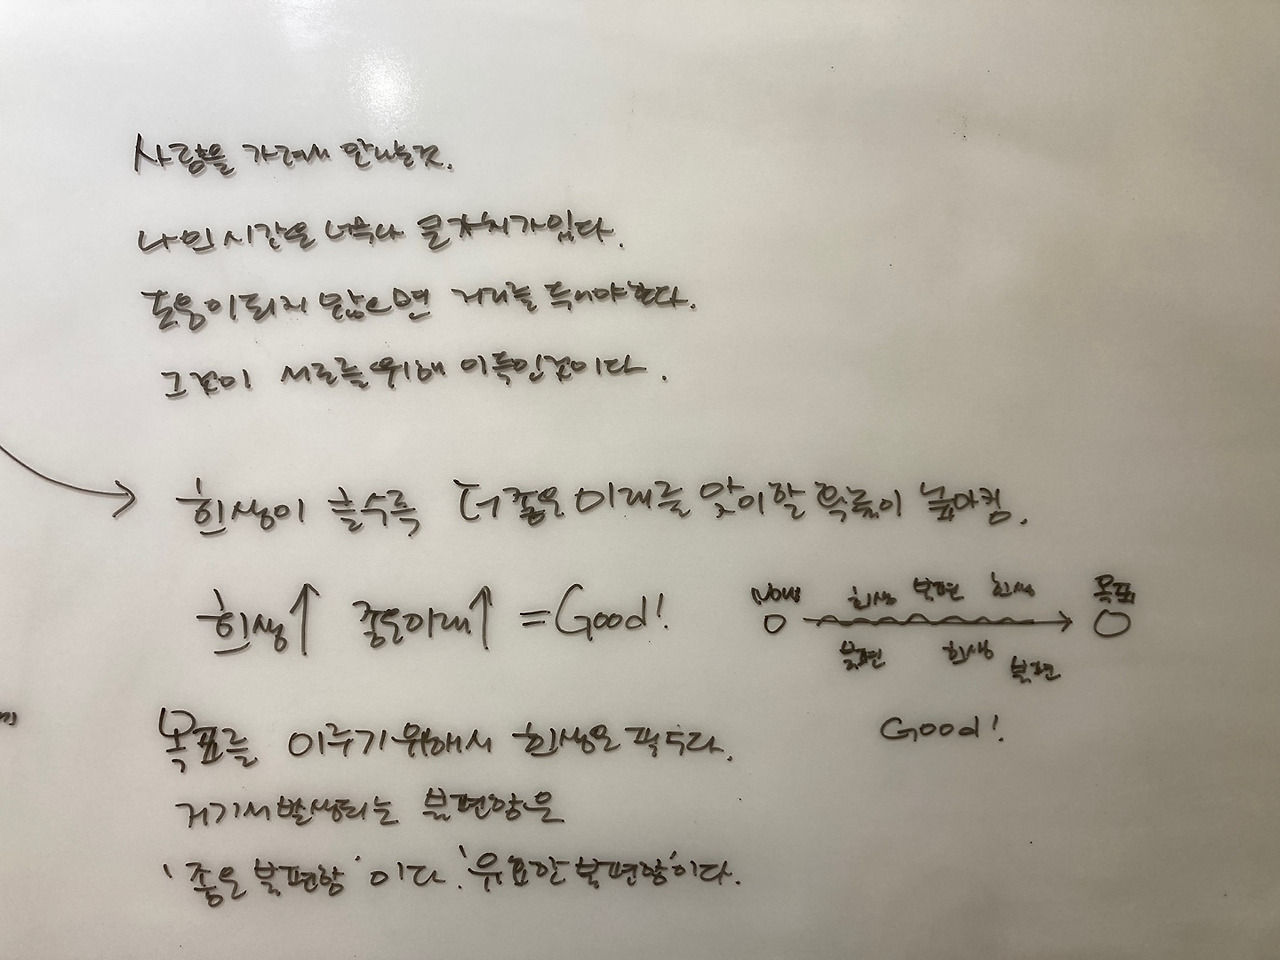 사람을 가려서 만나는것.
나의 시간은 너무나 큰가치가있다.
도움이되지 않으면 거리를 두어야한다.
그것이 서로를위해 이득인것이다.
희생이 클수록 더 좋은 미래를 맞이할 확률이 높아짐.
희생↑ 좋은미래↑ = Good!
Now 희생 불편 희생 목표
불편 희생 불편
Good!
목표를 이루기위해서 희생은 필수다.
거기서발생되는 불편함은
'좋은 불편함' 이다. '유효한 불편함'이다.